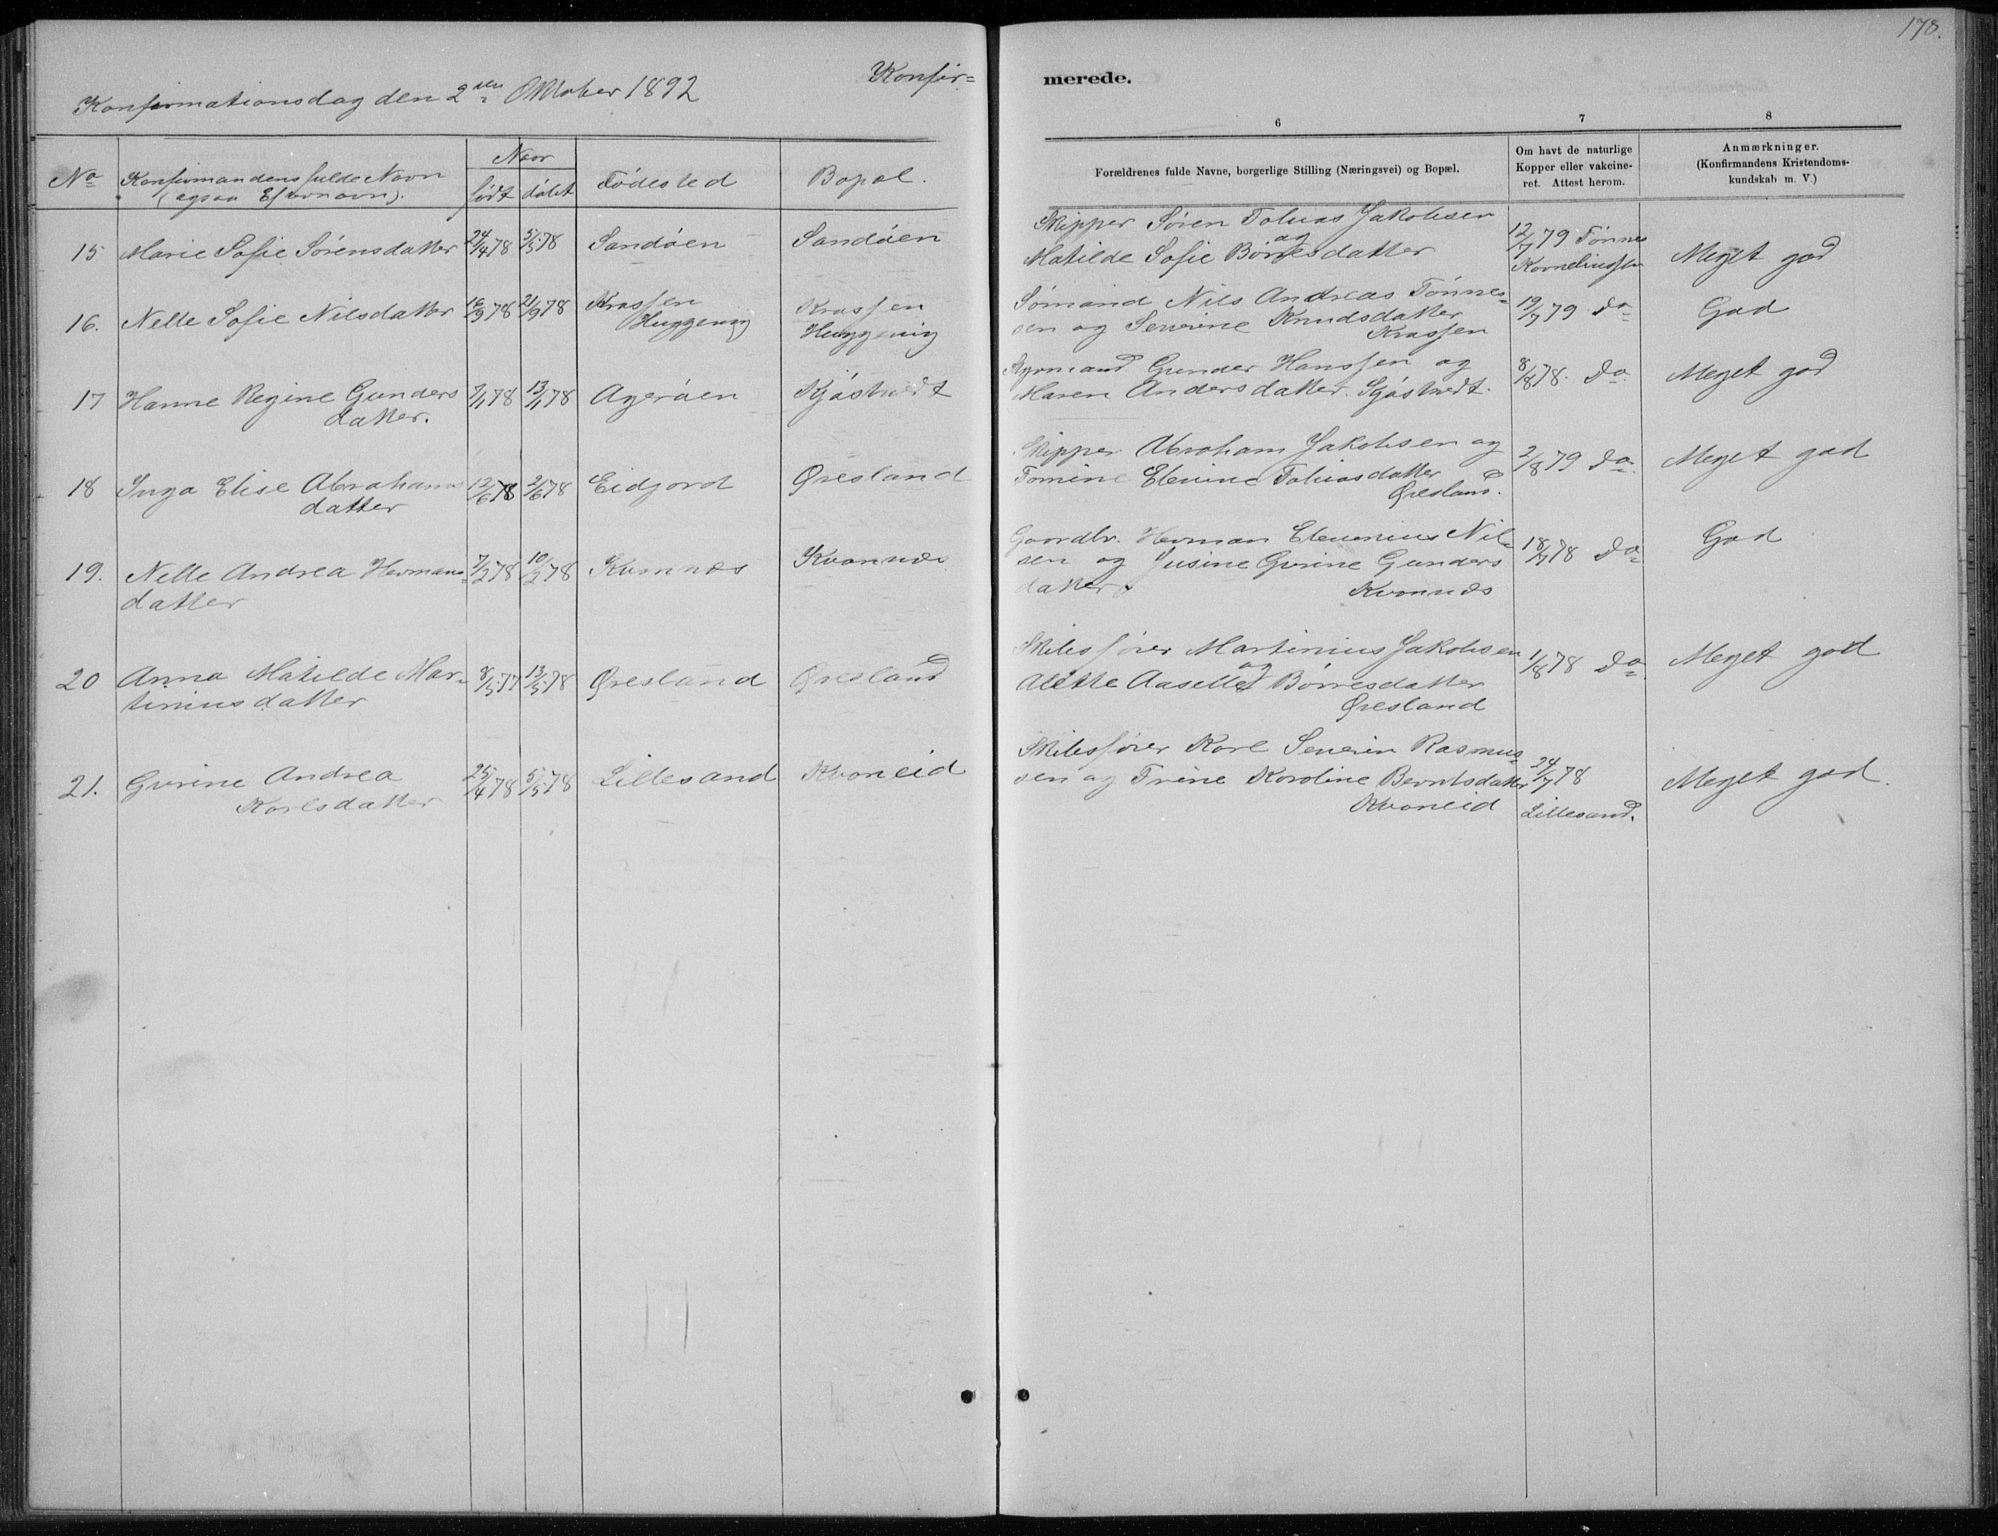 178.
Konfir=
merede.
Konfirmationsdag den 2den Oktober 1892
6
7
8
No
Konfirmandens fulde Navn
(ogsaa Efternavn).
Naar
født
døbt
Fødested
Bopæl.
Forældrenes fulde Navne, borgerlige Stilling (Næringsvei) og Bopæl.
Om havt de naturlige
Kopper eller vakcine-
ret. Attest herom.
Anmærkninger.
(Konfirmandens Kristendoms-
kundskab m. V.)
15 Marie Sofie Sørensdatter 24/4 78 5/5 78 Sandøen Sandøen
Skipper Søren Tobias Jakobsen
og
Matilde Sofie Børresdatter
12/7 79 Tønnes
Korneliussen
Meget god
16. Nelle Sofie Nilsdatter 16/9 78 21/9 78 Krossen
Huggenig
Krossen
Huggenig
Sømand Nils Andreas Tønnes-
sen og Severine Knudsdatter
Krossen
19/7 79 Do
God
17 Hanne Regine Gunders
datter.
7/1 78 13/1 78 Agerøen Kjøstvedt
Styrmand Gunder Hanssen og
Maren Andersdatter. Kjøstvedt.
8/8 78. Do
Meget god
18 Inga Elise Abrahams
datter
12/6 78 2/6 78 Eidjord Øresland
Skipper Abraham Jakobsen og
Tomine Elevine Tobiasdatter
Øresland.
2/8 79 Do
Meget god
19. Nelle Andrea Hermans=
datter
7/2 78 10/2 78 Kvannes Kvannes
Gaardbr. Herman Elevinius Nil-
sen og Jusine Gurine Gunders
datter
Kvannes
18/7 78 Do
God
20 Anna Matilde Mar-
tiniusdatter
8/5 77 13/5 78 Øresland Øresland
Skibsfører Martinius Jakobsen
og
Alette Aasette Børresdatter
Øresland
1/8 78 Do
Meget god
21. Gurine Andrea
Karlsdatter
25/4 78 5/5 78 Lillesand Kvaneid
Skibsfører Karl Severin Rasmus-
sen og Trine Karoline Berntsdatter
Kvaneid
24/7 78
Lillesand.
Meget god.